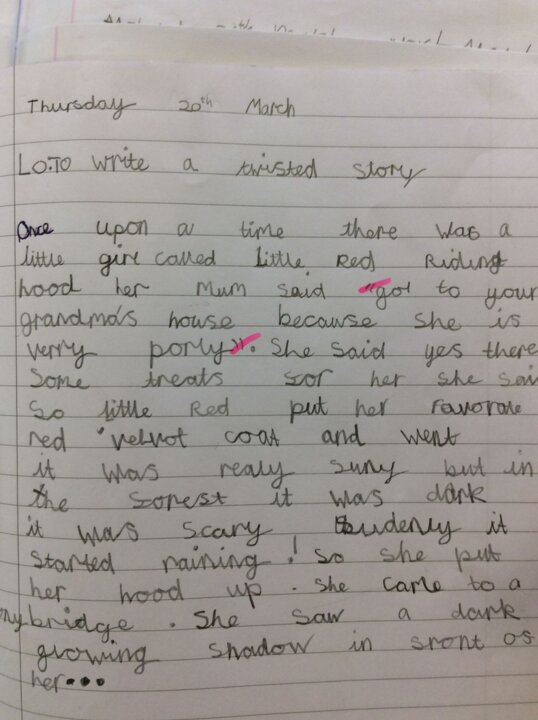 Thursday 20th March
L.O.TO write a twisted story
Once upon a time there was a
little girl called little Red Riding
hood her mum said "got to your
grandma's house because she is
verry porly". She said yes there
some treats for her she sai
So little Red put her favorate
red velvot coat and went
it was realy suny but in
the forest it was dark
it was scary Suddenly it
started raining! So she put
her hood up. She came to a
bridge. She saw a dark
growing shadow in front of
her...